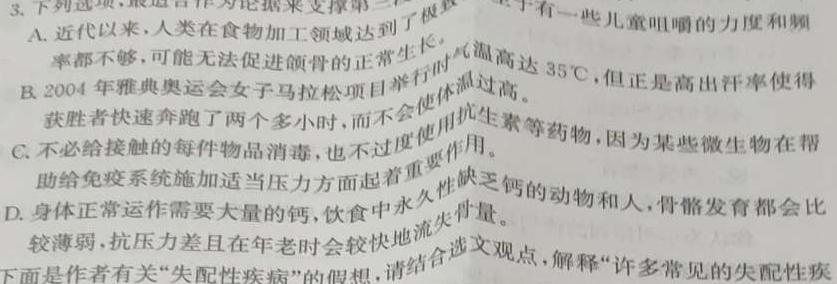 3. 下列选项，最适合作为论据来支撑第三
A. 近代以来，人类在食物加工领域达到了极致 于有一些儿童咀嚼的力度和频
率都不够，可能无法促进颌骨的正常生长。
B. 2004 年雅典奥运会女子马拉松项目举行时气温高达 35℃，但正是高出汗率使得
获胜者快速奔跑了两个多小时，而不会使体温过高。
C. 不必给接触的每件物品消毒，也不过度使用抗生素等药物，因为某些微生物在帮
助给免疫系统施加适当压力方面起着重要作用。
D. 身体正常运作需要大量的钙，饮食中永久性缺乏钙的动物和人，骨骼发育都会比
较薄弱，抗压力差且在年老时会较快地流失骨量。
下面是作者有关“失配性疾病”的假想，请结合选文观点，解释“许多常见的失配性疾